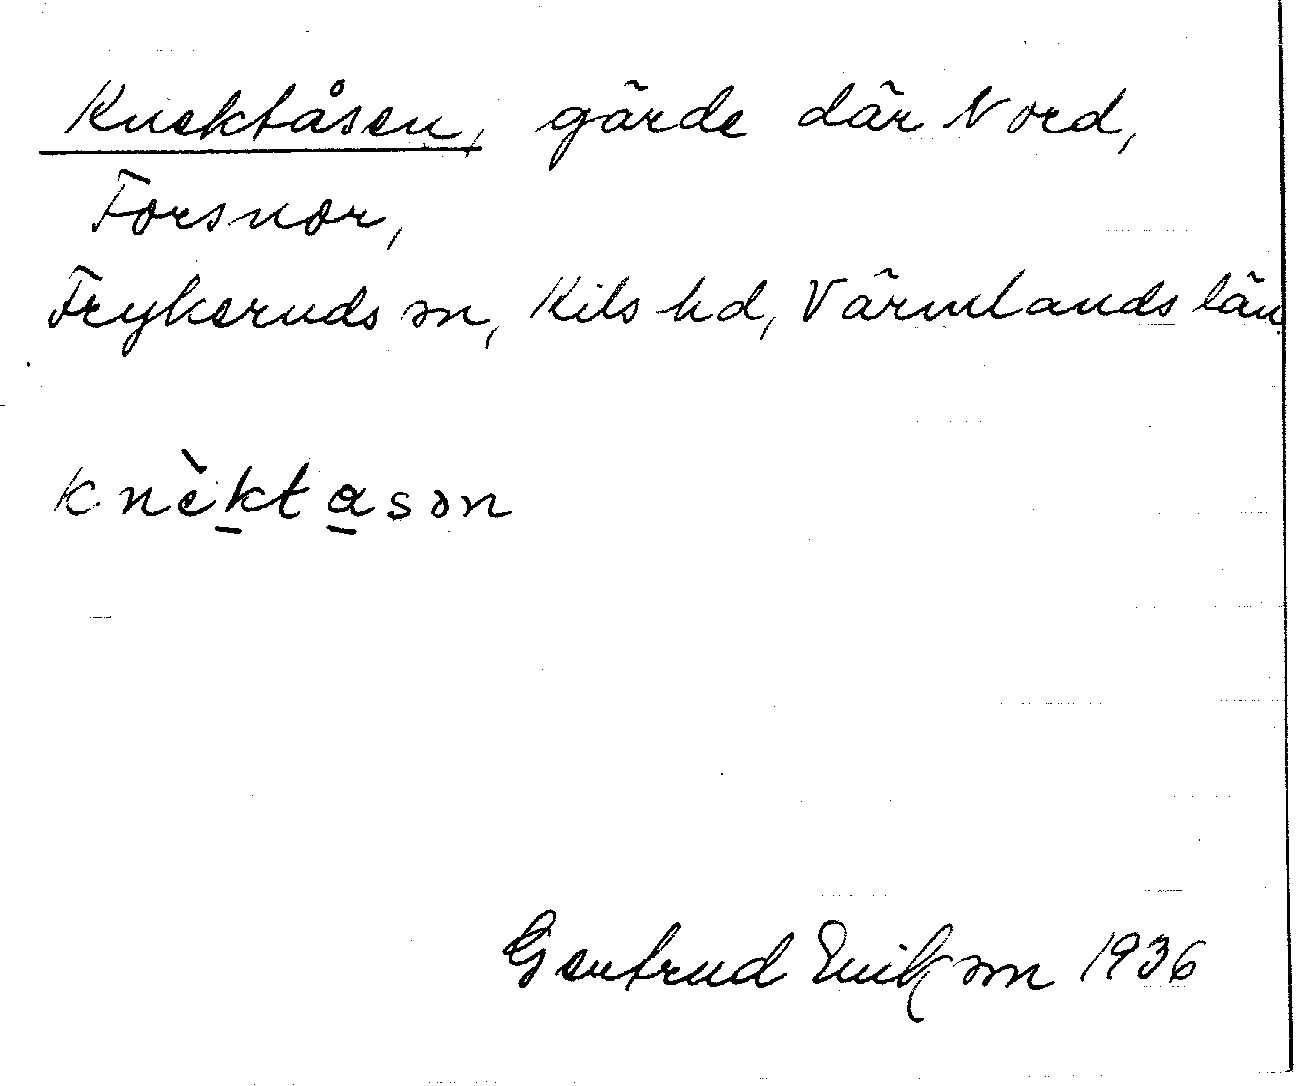 Knektåsen, gärde där Nord,
Forsnor,
Frykeruds sn, Kils hd, Värmlands län
knèktasən
Gertrud Eriksson 1936